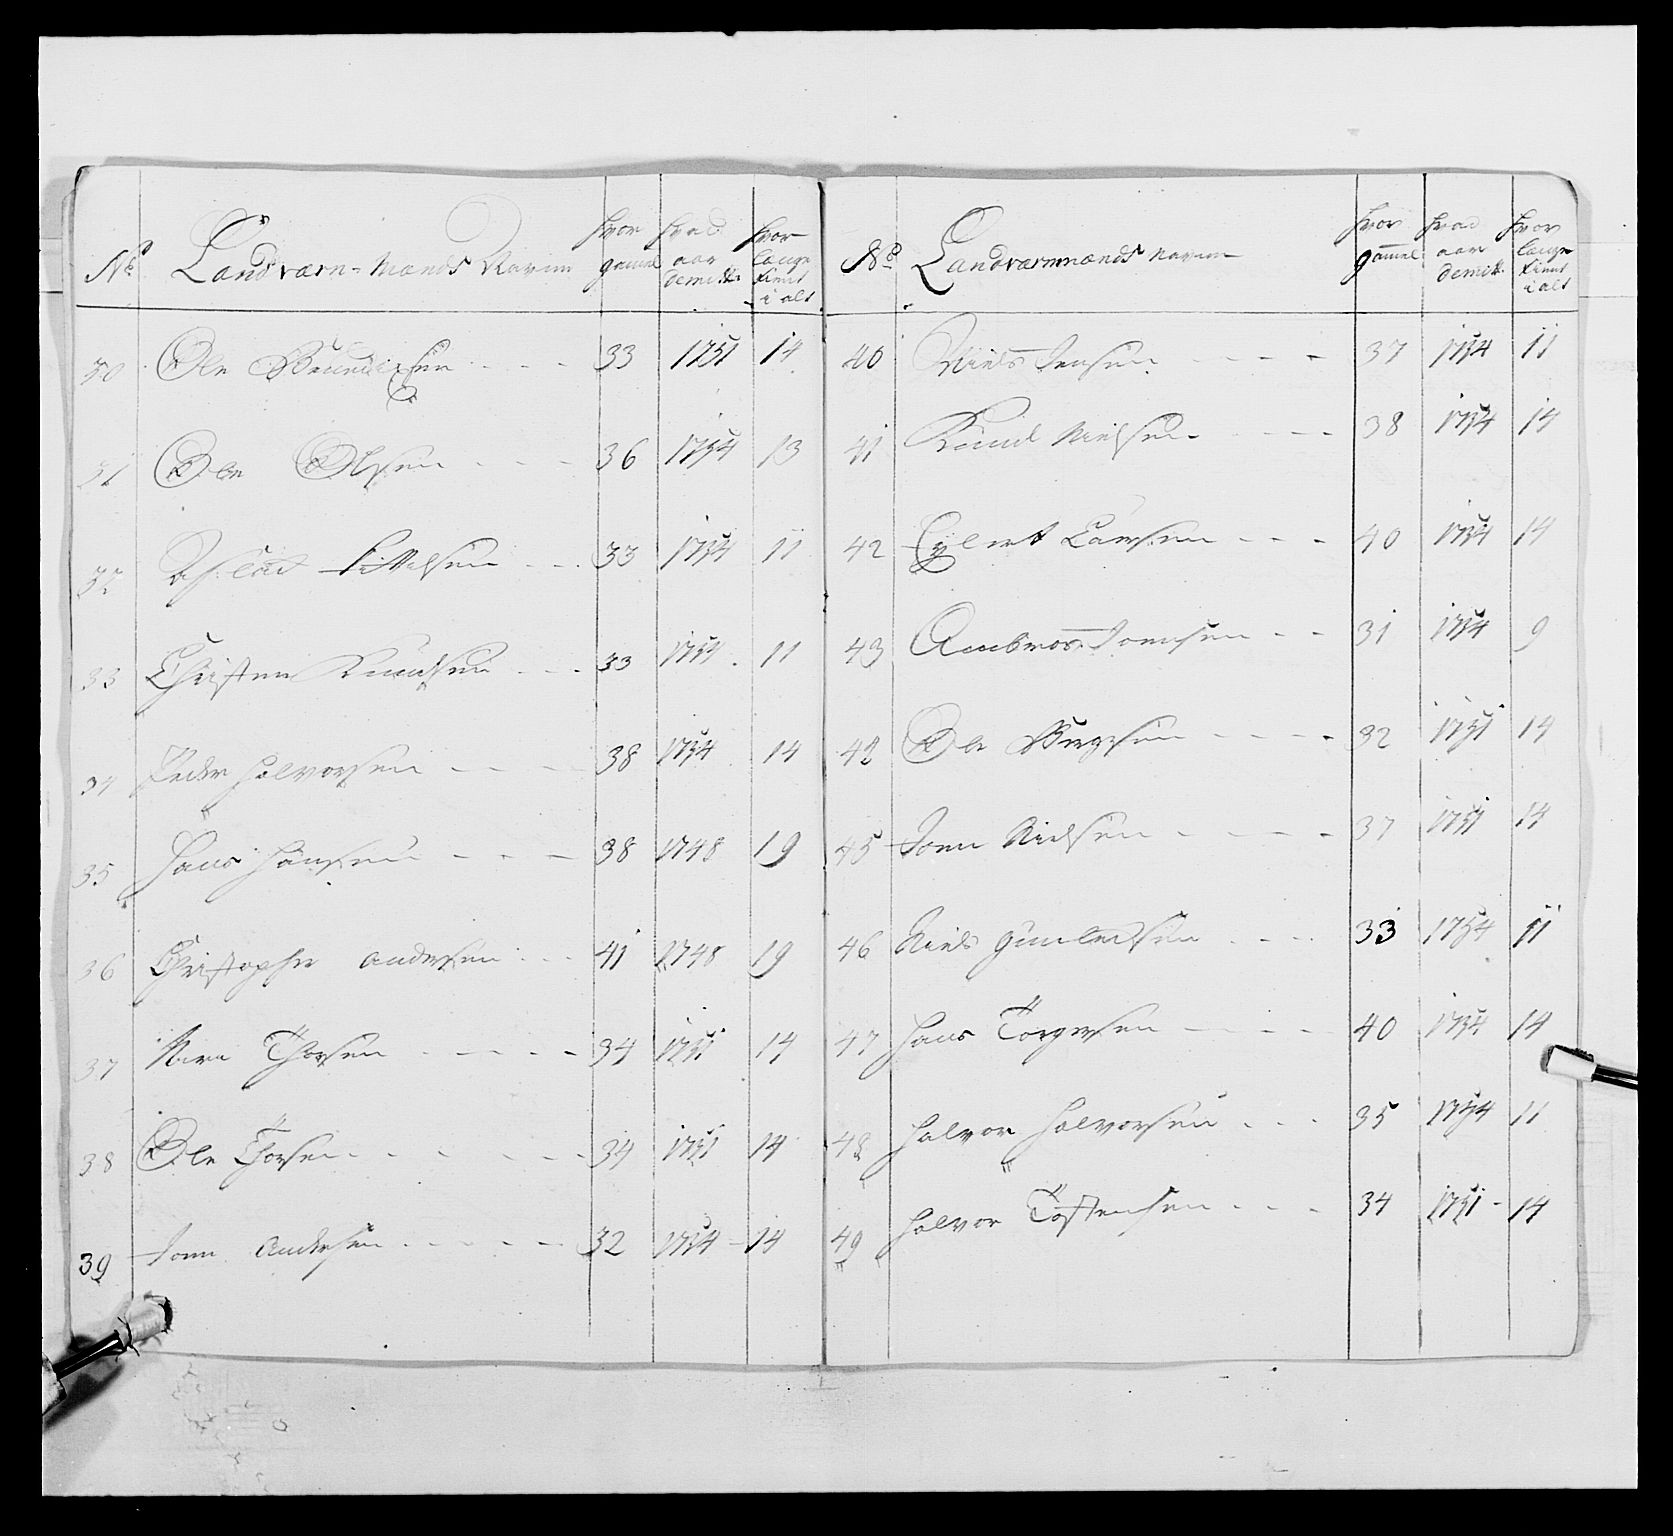 No Landværn-Mænds Navne hvor gamel hvad aar demitt. hvor længe tient i alt
30 Ole Bendixsen 33 1751 14
31 Ole Olsen 36 1754 13
32 Aslac Kittelsen 33 1754 11
33 Christen Knudsen 33 1754 11
34 Peder Halvorsen 38 1754 14
35 Hans Hansen 38 1748 19
36 Christopher Andersen 41 1748 19
37 Thorsen 34 1751 14
38 Ole Thorsen 34 1751 14
39 Joen Andersen 32 1754 14
No Landværnmænds Navne hvor gamel hvad aar demitt. hvor længe tient i alt
40 Niels Jensen 37 1754 11
41 Knud Nielsen 38 1754 14
42 Eylert Larsen 40 1754 14
43 Ambros Joensen 31 1754 9
42 Ole Bergesen 32 1751 14
45 Joen Nielsen 37 1751 14
46 Niels Gunledsen 33 1754 11
47 Hans Torgersen 40 1754 14
48 Halvor Halvorsen 35 1754 11
49 Halvor Tostensen 34 1751 14